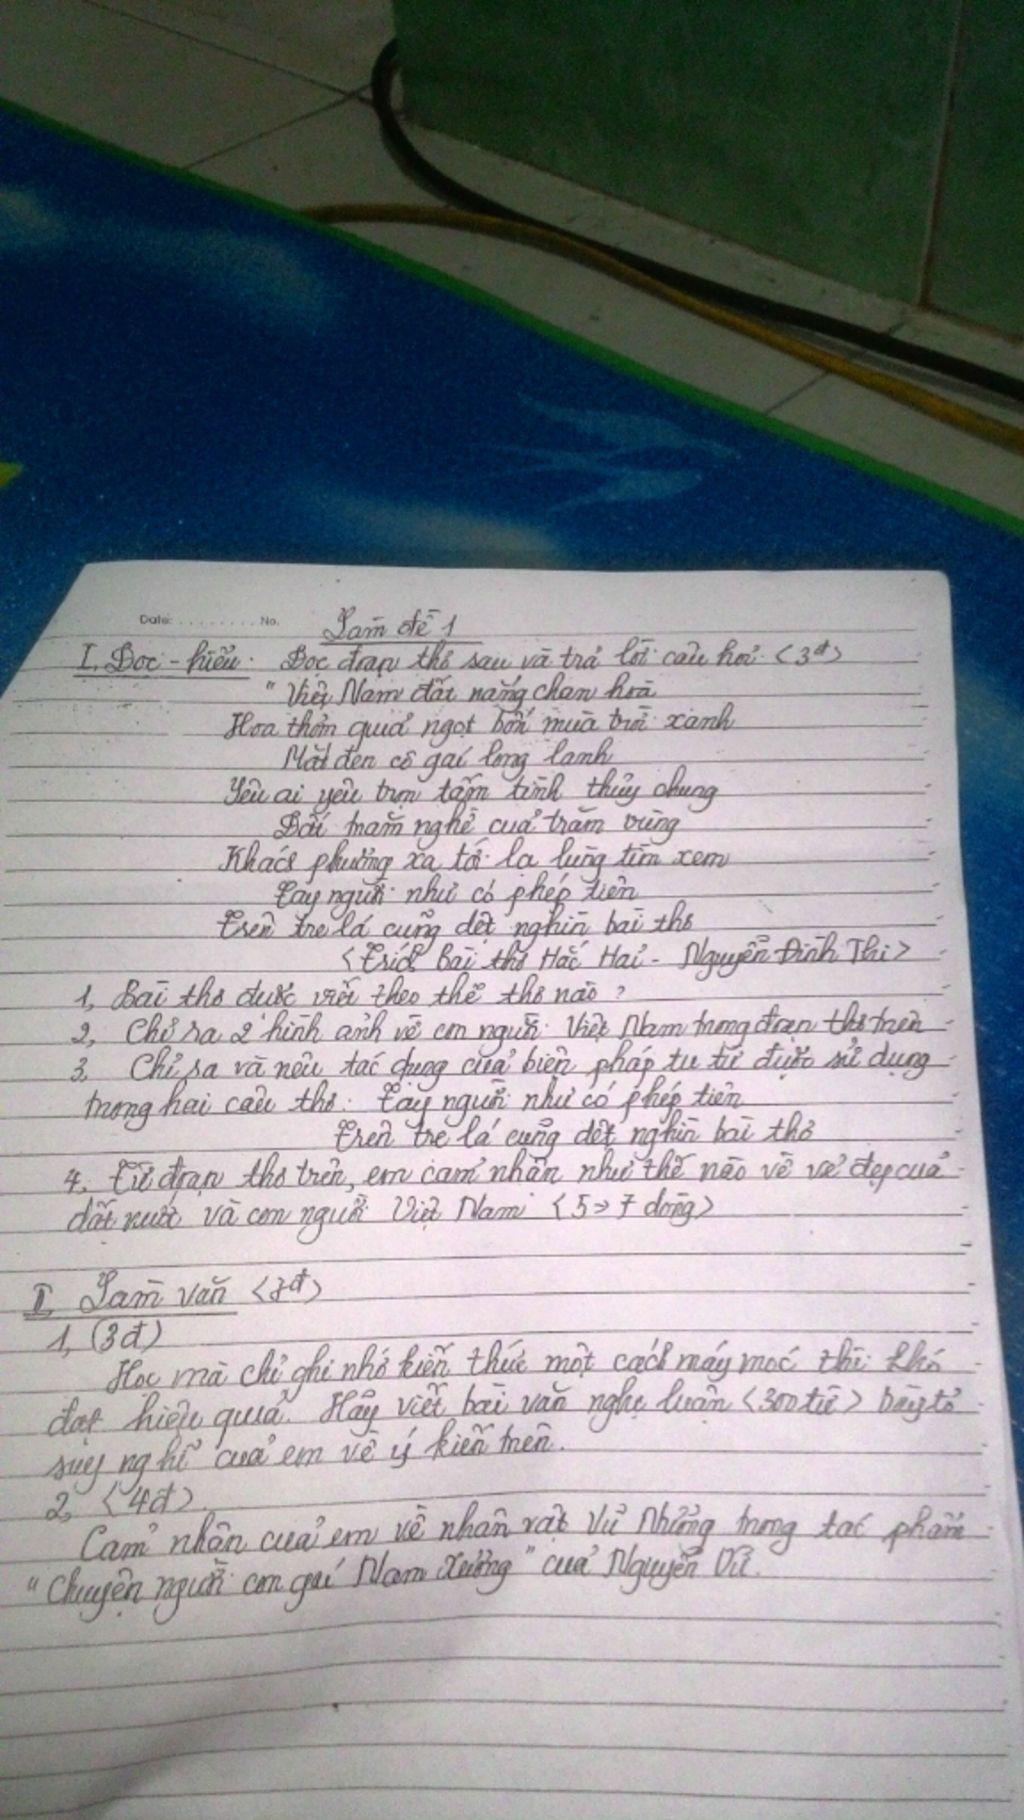 Date: ......... No.
Làm đề 1
I, Đọc - hiểu: Đọc đoạn thơ sau và trả lời câu hỏi <3đ>
"Việt Nam đất nắng chan hoà
Hoa thơm quả ngọt bốn mùa trời xanh
Mắt đen cô gái long lanh
Yêu ai yêu trọn tấm tình thủy chung
Đất trăm nghề của trăm vùng
Khách phương xa tới lạ lùng tìm xem
Tay người như có phép tiên
Trên tre lá cũng dệt nghìn bài thơ
<Trích Bài thơ Hắc Hải - Nguyễn Đình Thi>
1, Bài thơ được viết theo thể thơ nào?
2, Chỉ ra 2 hình ảnh về con người Việt Nam trong đoạn thơ trên
3, Chỉ ra và nêu tác dụng của biện pháp tu từ được sử dụng
trong hai câu thơ: Tay người như có phép tiên
Trên tre lá cũng dệt nghìn bài thơ
4, Từ đoạn thơ trên, em cảm nhận như thế nào về vẻ đẹp của
đất nước và con người Việt Nam <5->7 dòng>
II, Làm văn <7đ>
1, (3đ)
Học mà chỉ ghi nhớ kiến thức một cách máy móc thì khó
đạt hiệu quả. Hãy viết bài văn nghị luận <300 từ> bày tỏ
suy nghĩ của em về ý kiến trên.
2, <4đ>
Cảm nhận của em về nhân vật Vũ Nương trong tác phẩm
"Chuyện người con gái Nam Xương" của Nguyễn Dữ.